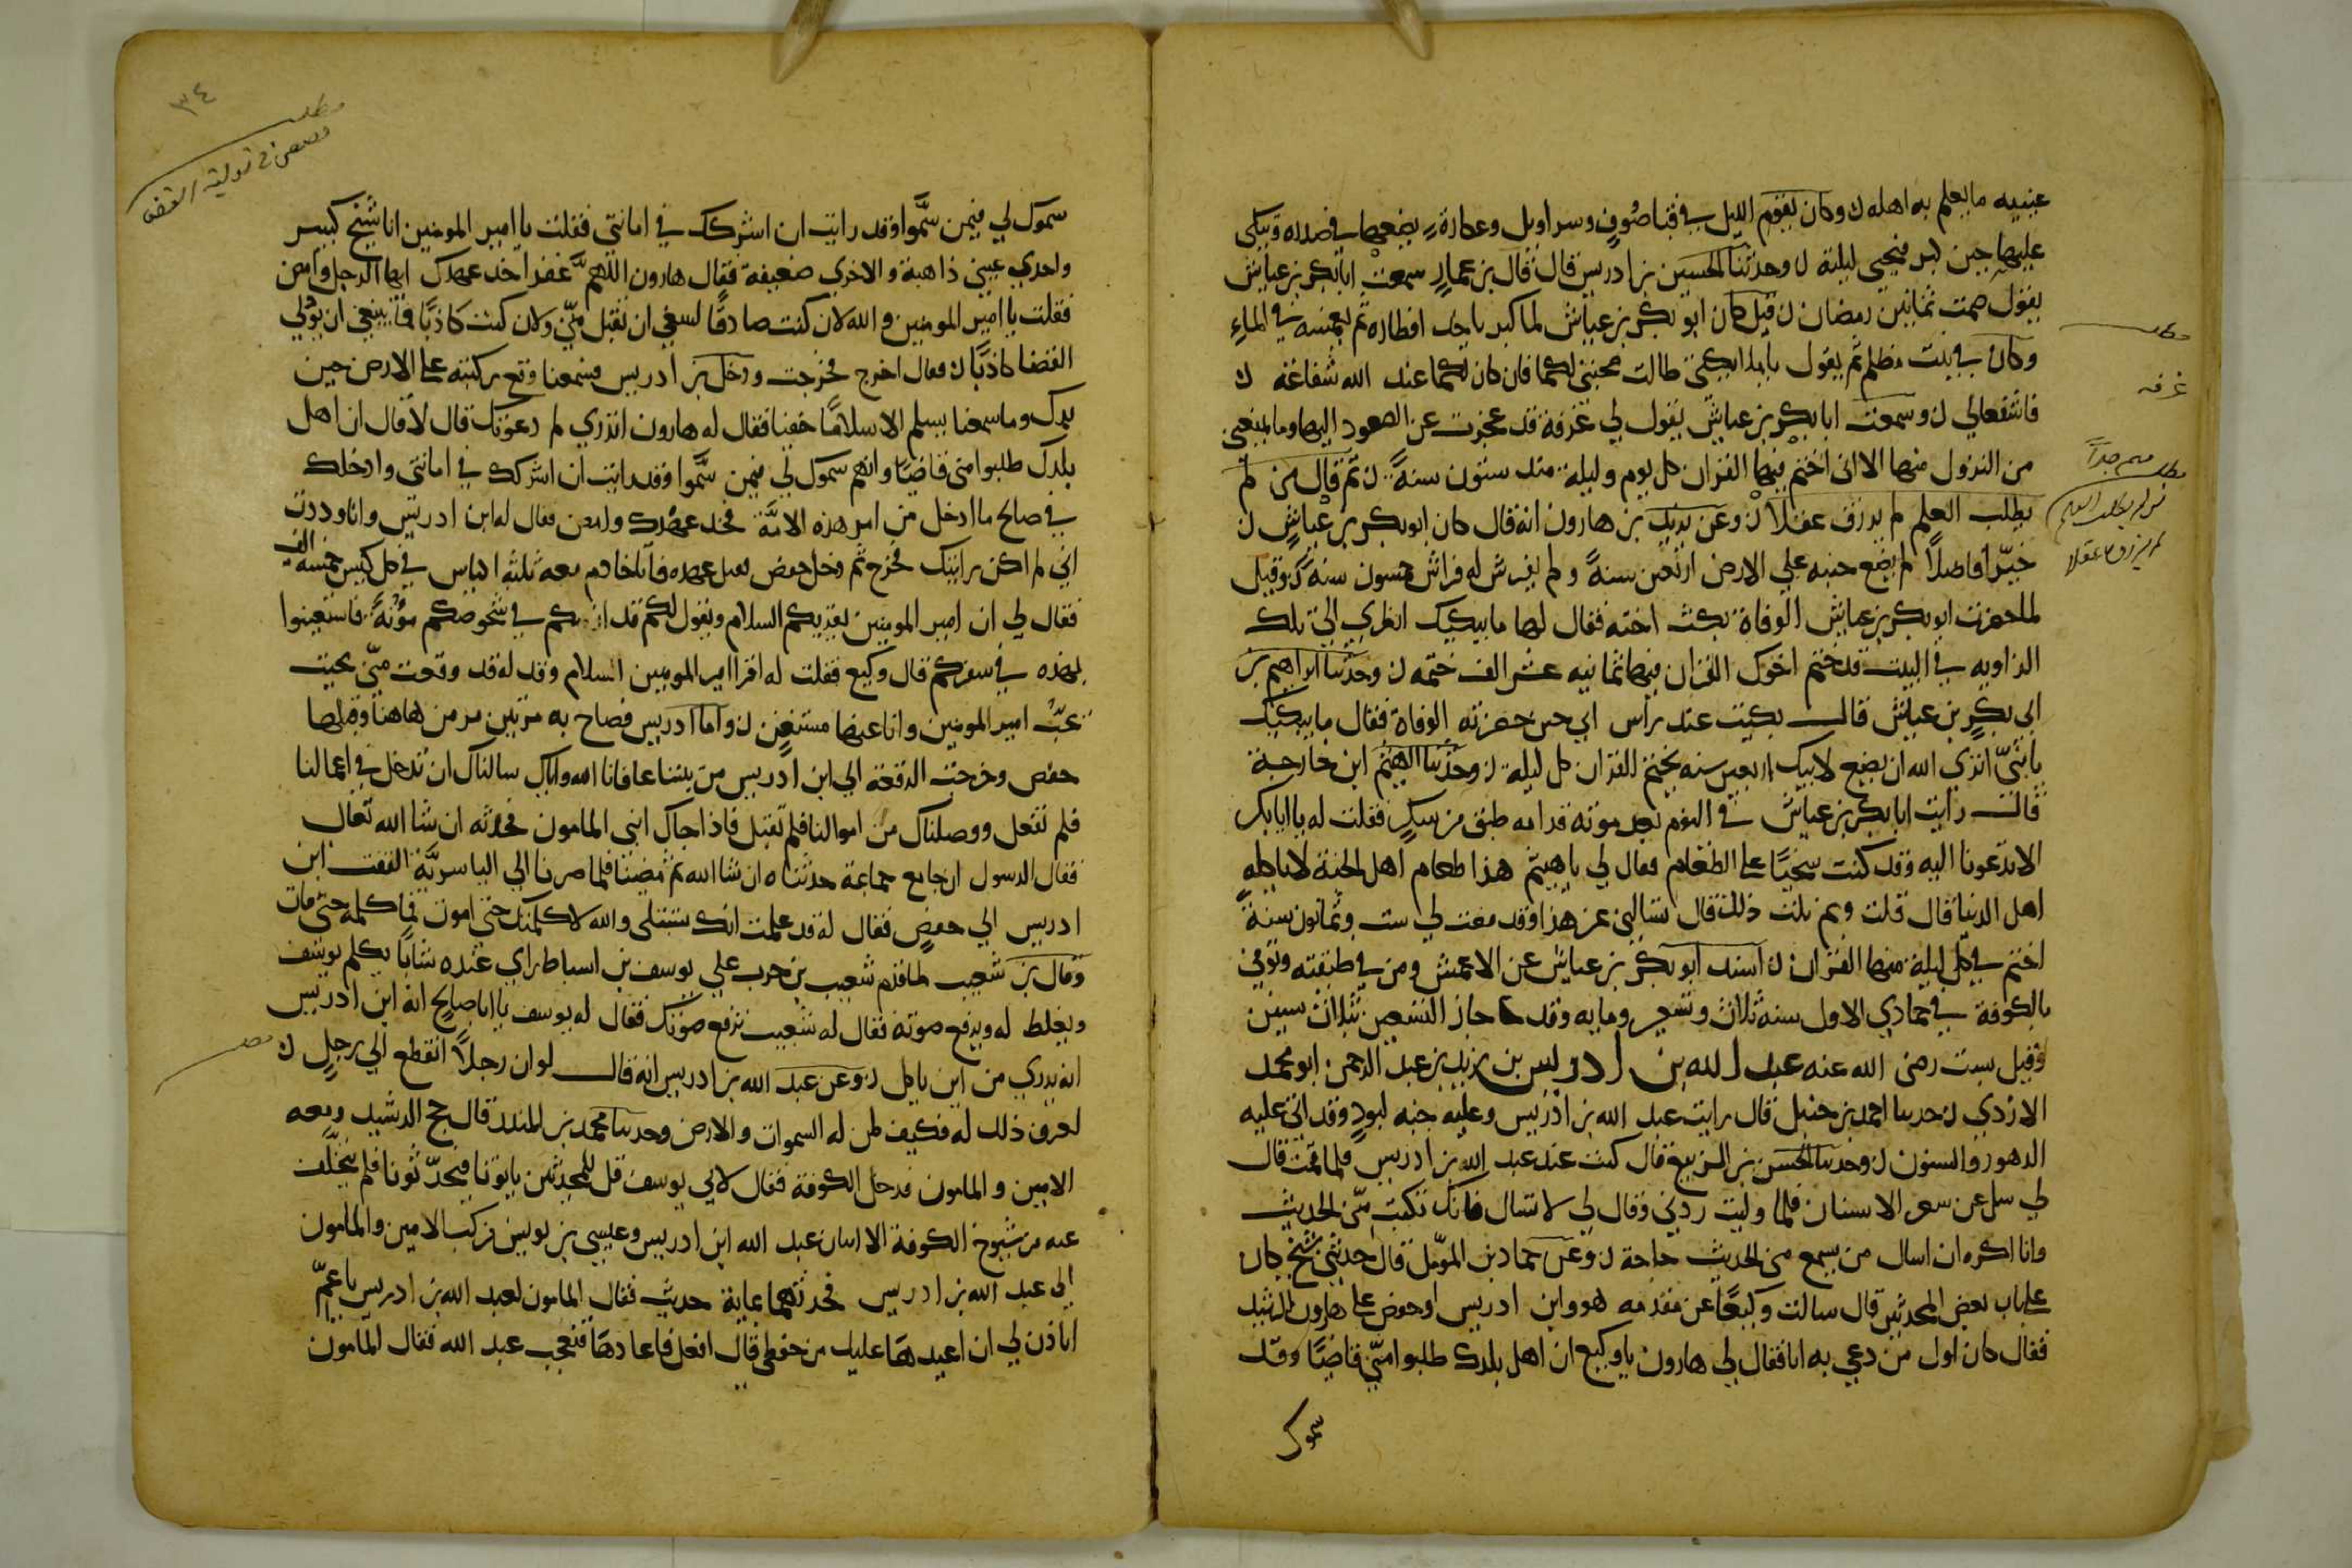 عينيه ما يعلم به اهله ن وكان يقوم الليل في قبا صوف وسراويل وعكازة يضعها في صدره ويتكي
عليها حين كبر فيحيي ليلته ن وحدثنا الحسين بن ادريس قال قال بن عمار سمعت ابا بكر بن عياش
يقول صمت ثمانين رمضان ن قيل كان ابو بكر بن عياش لما كبر ياخذ افطاره ثم يغمسه في الماء
وكان في بيت مظلم ثم يقول يا ملائكتي طالت صحبتي لكما فان كان لكما عند الله شفاعة ن
فاشفعا لي ن وسمعت ابا بكر بن عياش يقول لي غرفة قد عجزت عن الصعود اليها وما يمنعني
من النزول منها الا اني اختم فيها القران كل يوم وليلة منذ ستون سنة ن ثم قال من لم
يطلب العلم لم يرزق عقلا ن وعن يزيد بن هارون انه قال كان ابو بكر بن عياش ن
خيرا فاضلا لم يضع جنبه علي الارض اربعين سنة ولم يفرش له فراش خمسون سنة ن وقيل
لما حضرت ابو بكر بن عياش الوفاة بكت اخته فقال لها ما يبكيك انظري الي تلك
الزاويه في البيت قد ختم اخوك القران فيها ثمانيه عشر الف ختمه ن وحدثنا ابراهيم بن
ابي بكر بن عياش قال بكيت عند راس ابي حين حضرته الوفاة فقال ما يبكيك
يا بني اتري الله ان يضيع لابيك اربعين سنه يختم القران كل ليلة ن وحدثنا الهيثم ابن خارجة
قال رايت ابا بكر بن عياش في النوم بعد موته قدامه طبق من سكر فقلت له يا ابا بكر
الا تدعونا اليه وقد كنت سخيا علي الطعام فقال لي يا هيثم هذا طعام اهل الجنة لا ياكله
اهل الدنيا قال قلت وبم نلت ذلك قال تسالني عن هذا وقد مضت لي ست وثمانون سنة
اختم في كل ليلة منها القران ن اسند ابو بكر بن عياش عن الاعمش ومن في طبقته وتوفي
بالكوفة في جمادي الاول سنه ثلاث وتسعين ومايه وقد جاز التسعين بثلاث سنين
وقيل بست رضي الله عنه عبد الله بن ادريس بن يزيد بن عبد الرحمن ابو محمد
الازدي ن حدثنا احمد بن حنبل قال رايت عبد الله بن ادريس وعليه جبه لبود وقد اتي عليه
الدهور والسنون ن وحدثنا الحسن بن الربيع قال كنت عند عبد الله بن ادريس فلما قمت قال
لي سل عن سعر الاسنان فلما وليت ردني وقال لي لا تسال فانك تكتب مني الحديث
وانا اكره ان اسال من يسمع مني الحديث حاجة ن وعن حماد بن المؤمل قال حدثني شيخ كان
علي باب بعض المحدثين قال سالت وكيعا عن مقدمه هو وابن ادريس وحفص علي هارون الرشيد
فقال كان اول من دعي به انا فقال لي هارون يا وكيع ان اهل بلدك طلبوا مني قاضيا وقد
سموك
مطلب
غرفه
مطلب مهم جدا
من لم يطلب العلم
لم يرزق عقلا
٣٤
مطلب
قصص في تولية القضا
سموك لي فيمن سموا وقد رايت ان اشركك في امانتي فقلت يا امير المومنين انا شيخ كبير
واحدي عيني ذاهبة والاخري ضعيفة فقال هارون اللهم غفرا خذ عهدك ايها الرجل وامض
فقلت يا امير المومنين والله لان كنت صادقا ينبغي ان تقبل مني ولان كنت كاذبا فما ينبغي ان تولي
القضا كاذبا ن فقال اخرج فخرجت ودخل بن ادريس فسمعنا وقع ركبته علي الارض حين
برك وما سمعنا يسلم الا سلاما خفيا فقال له هارون اتدري لم دعوتك قال لا قال ان اهل
بلدك طلبوا مني قاضيا وانهم سموك لي فيمن سموا وقد رايت ان اشركك في امانتي وادخلك
في صالح ما ادخل من امر هذه الامة فخذ عهدك وامض فقال له ابن ادريس وانا وددت
اني لم اكن رايتك فخرج ثم دخل حفص فقبل عهده فاتانا خادم معه ثلثه اكياس في كل كيس خمسه الف
فقال لي ان امير المومنين يقريكم السلام ويقول لكم قد لزمتكم في شخوصكم مؤنة فاستعينوا
بهذه في سفركم قال وكيع فقلت له اقرا امير المومنين السلام وقل له قد وقعت مني بحيث
يحب امير المومنين وانا عنها مستغني ن واما ادريس فصاح به مرتين مر من هاهنا وقبلها
حفص وخرجت الرقعة الي ابن ادريس من بيننا عافانا الله واياك سالناك ان تدخل في اعمالنا
فلم تفعل ووصلناك من اموالنا فلم تقبل فاذا جاك ابني المامون فحدثه ان شا الله تعال
فقال الرسول ان جا مع جماعة حدثناه ان شا الله ثم مضينا فلما صرنا الي الياسرية التفت ابن
ادريس الي حفص فقال له قد علمت انك ستبتلي والله لا كلمتك حتي اموت فما كلمه حتي مات
وقال بن شعيب لما قدم شعيب بن حرب علي يوسف بن اسباط راي عنده شابا يكلم يوسف
ويغلظ له ويرفع صوته فقال له شعيب ترفع صوتك فقال له يوسف يا ابا صالح انه ابن ادريس
انه يدري من اين ياكل ن وعن عبد الله بن ادريس انه قال لو ان رجلا انقطع الي رجل ن
لعرف ذلك له فكيف لمن له السموات والارض وحدثنا محمد بن المنذر قال حج الرشيد ومعه
الامين والمامون فدخل الكوفة فقال لابي يوسف قل للمحدثين ياتونا فيحدثونا فلم يتخلف
عنه من شيوخ الكوفة الا اثنان عبد الله ابن ادريس وعيسي بن يونس فركب الامين والمامون
الي عبد الله بن ادريس فحدثهما بماية حديث فقال المامون لعبد الله بن ادريس يا عم
اتاذن لي ان اعيدها عليك من حفظي قال افعل فاعادها فتعجب عبد الله فقال المامون
مطلب